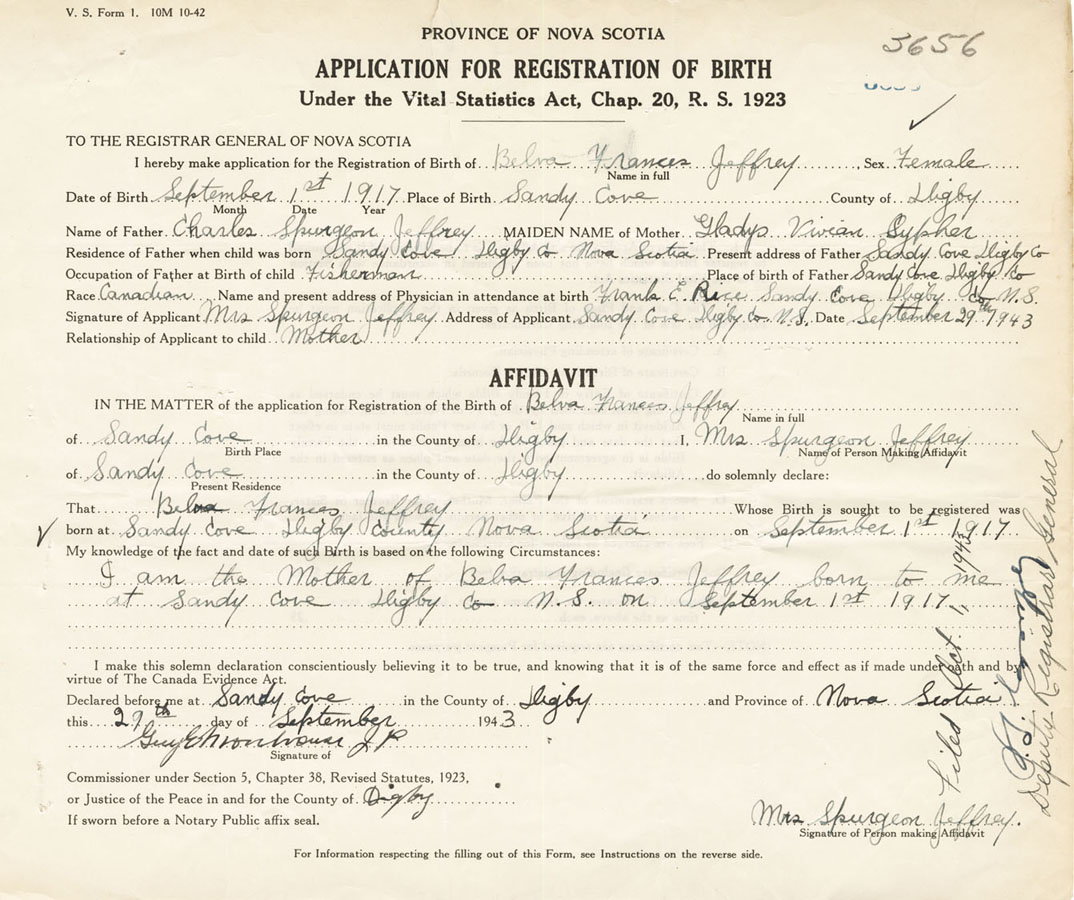 V. S. Form 1. 10M 10-42
PROVINCE OF NOVA SCOTIA
3656
APPLICATION FOR REGISTRATION OF BIRTH
Under the Vital Statistics Act, Chap. 20, R. S. 1923
TO THE REGISTRAR GENERAL OF NOVA SCOTIA
I hereby make application for the Registration of Birth of Belva Frances Jeffrey, Sex Female
Name in full
Date of Birth September 1st 1917 Place of Birth Sandy Cove County of Digby
Month Date Year
Name of Father Charles Spurgeon Jeffrey MAIDEN NAME of Mother Gladys Vivian Sypher
Residence of Father when child was born Sandy Cove Digby Co Nova Scotia Present address of Father Sandy Cove Digby Co
Occupation of Father at Birth of child Fisherman Place of birth of Father Sandy Cove Digby Co
Race Canadian Name and present address of Physician in attendance at birth Frank E. Rice Sandy Cove Digby Co N.S.
Signature of Applicant Mrs Spurgeon Jeffrey Address of Applicant Sandy Cove Digby Co. N.S. Date September 29th 1943
Relationship of Applicant to child Mother
AFFIDAVIT
IN THE MATTER of the application for Registration of the Birth of Belva Frances Jeffrey
Name in full
of Sandy Cove in the County of Digby I, Mrs Spurgeon Jeffrey
Birth Place Name of Person Making Affidavit
of Sandy Cove in the County of Digby do solemnly declare:
Present Residence
That Belva Frances Jeffrey Whose Birth is sought to be registered was
born at Sandy Cove Digby County Nova Scotia on September 1st 1917
My knowledge of the fact and date of such Birth is based on the following Circumstances:
I am the Mother of Belva Frances Jeffrey born to me
at Sandy Cove Digby Co N.S. on September 1st 1917
I make this solemn declaration conscientiously believing it to be true, and knowing that it is of the same force and effect as if made under oath and by
virtue of The Canada Evidence Act.
Declared before me at Sandy Cove in the County of Digby and Province of Nova Scotia
this 29th day of September 1943
J P
Signature of
Commissioner under Section 5, Chapter 38, Revised Statutes, 1923,
or Justice of the Peace in and for the County of Digby
If sworn before a Notary Public affix seal.
Mrs Spurgeon Jeffrey.
Signature of Person making Affidavit
For Information respecting the filling out of this Form, see Instructions on the reverse side.
Filed Oct. 1, 1943
Deputy Registrar General